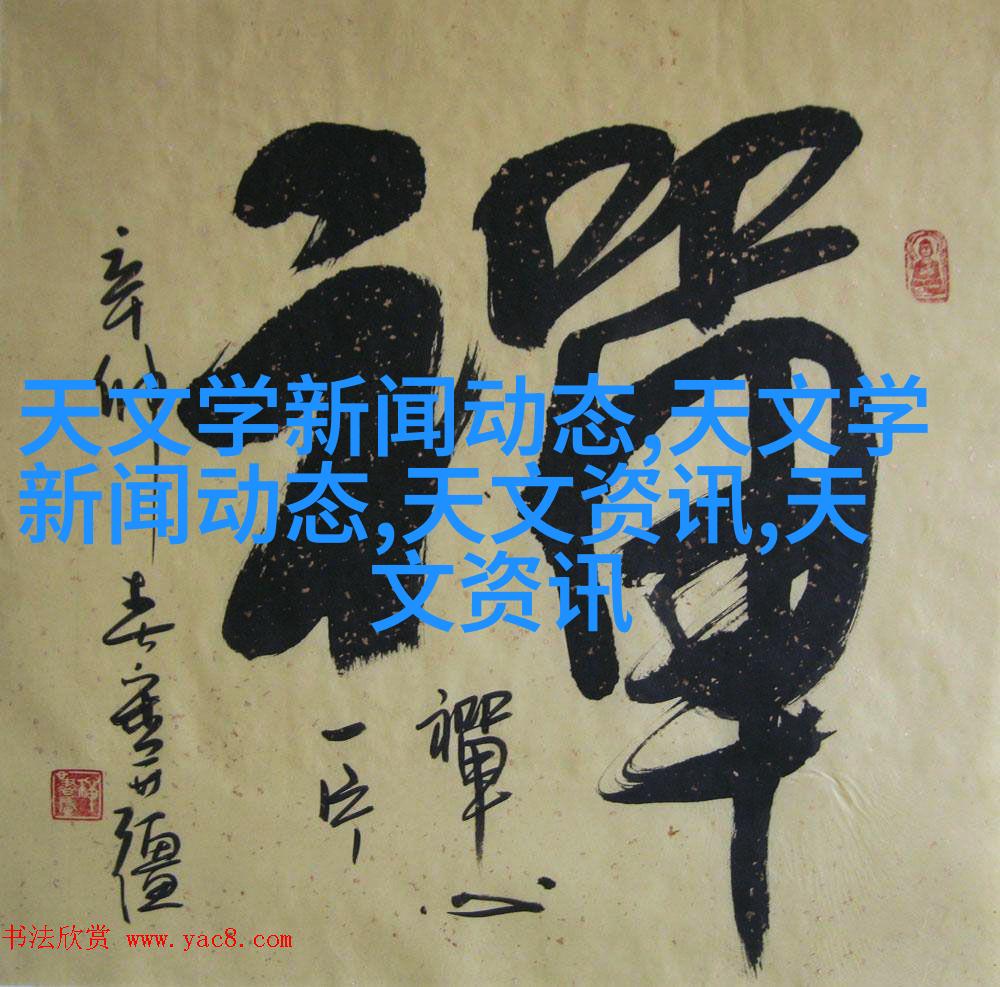 禪
天文学新闻动态,天文学
新闻动态,天文资讯,天
文资讯
禪心
一片
辛卯春
书法欣赏 www.yac8.com